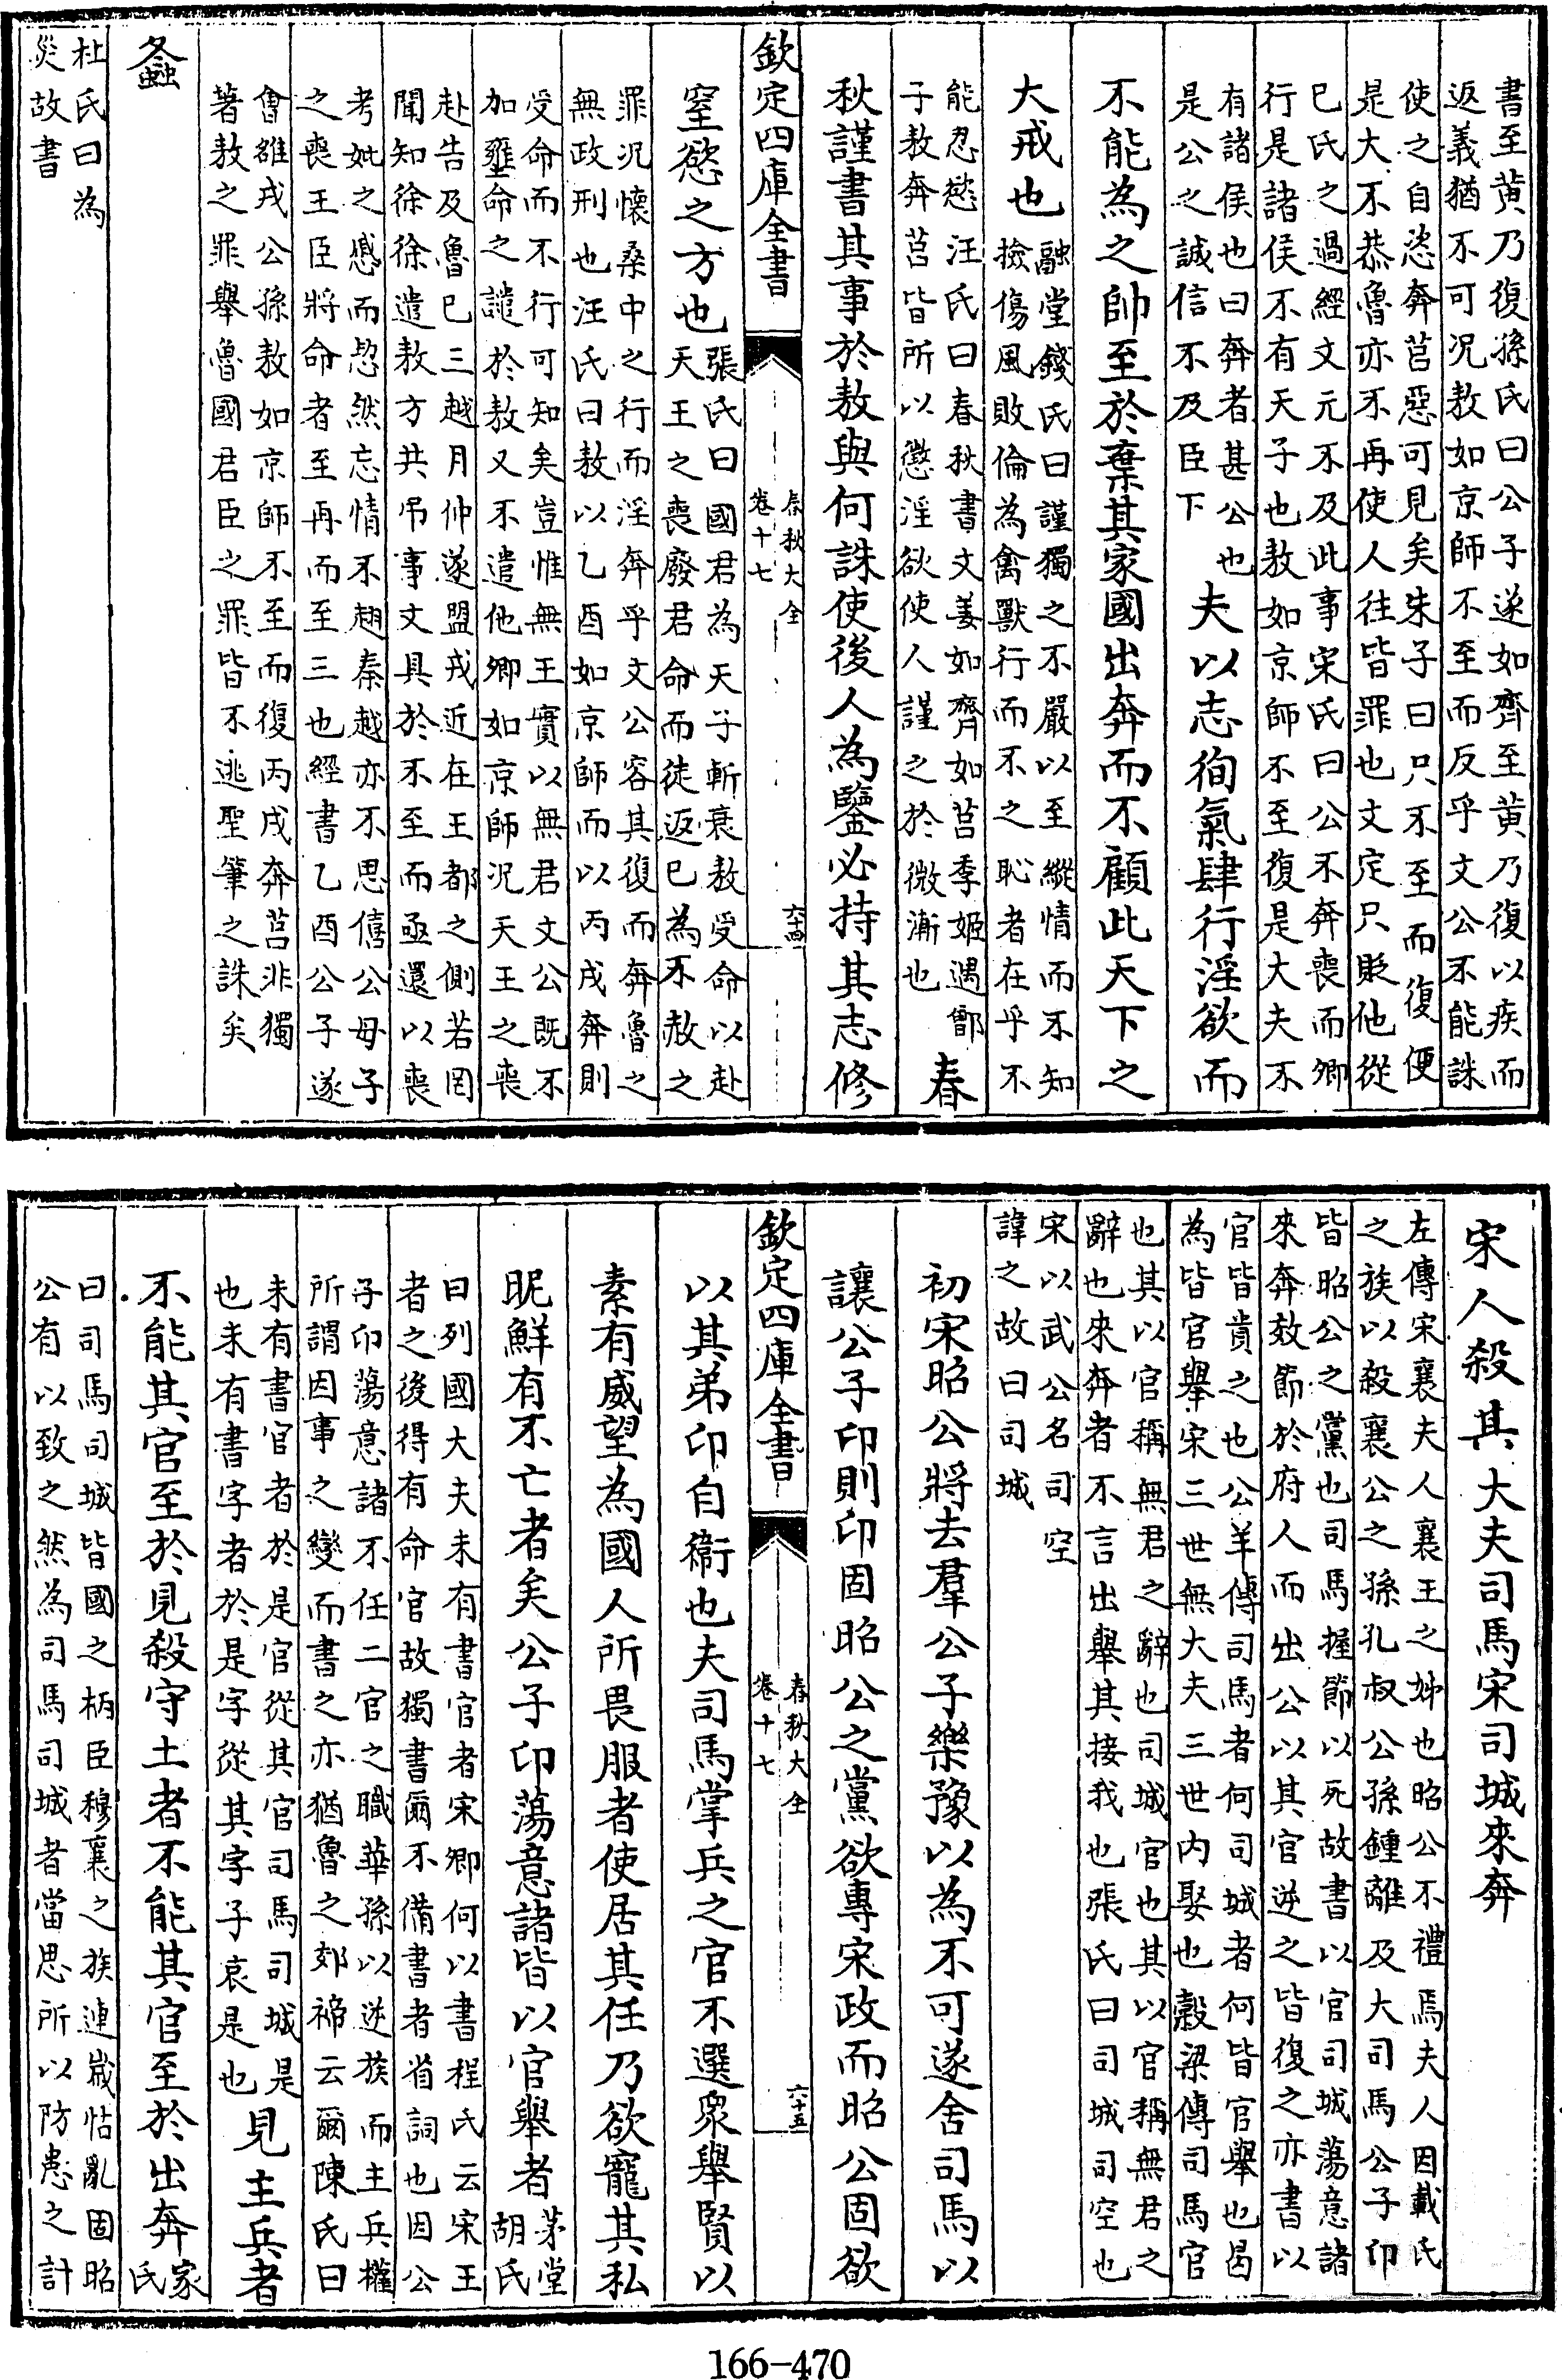 書至黄乃復孫氏曰公子遂如齊至黄乃復以疾而
返義猶不可况敖如京師不至而反乎文公不能誅
使之自恣奔莒惡可見矣朱子曰只不至而復便
是大不恭魯亦不再使人往皆罪也文定只貶他從
已氏之過經文元不及此事宋氏曰公不奔喪而卿
行是諸侯不有天子也敖如京師不至復是大夫不
有諸侯也曰奔者甚公也
是公之誠信不及臣下
夫以志徇氣肆行淫欲而
不能為之帥至於棄其家國出奔而不顧此天下之
大戒也
融堂錢氏曰謹獨之不嚴以至縱情而不知
撿傷風敗倫為禽獸行而不之恥者在乎不
能忍慾汪氏曰春秋書文姜如齊如莒季姬遇鄫
子敖奔莒皆所以懲淫欲使人謹之於微漸也
春
秋謹書其事於敖與何誅使後人為鑒必持其志修
欽定四庫全書
春秋大全
卷十七
六十四
窒慾之方也
張氏曰國君為天子斬衰敖受命以赴
天王之喪廢君命而徒返已為不赦之
罪况懷桑中之行而淫奔乎文公容其復而奔魯之
無政刑也汪氏曰敖以乙酉如京師而以丙戌奔則
受命而不行可知矣豈惟無王實以無君文公既不
加壅命之譴於敖又不遣他卿如京師况天王之喪
赴告及魯已三越月仲遂盟戎近在王都之側若因
聞知徐徐遣敖方共弔事文具於不至而亟還以喪
考妣之慼而恝然忘情不趐秦越亦不思僖公母子
之喪王臣將命者至再而至三也經書乙酉公子遂
會雒戎公孫敖如京師不至而復丙戌奔莒非獨
著敖之罪舉魯國君臣之罪皆不逃聖筆之誅矣
螽
杜氏曰為
災故書
宋人殺其大夫司馬宋司城來奔
左傳宋襄夫人襄王之姊也昭公不禮焉夫人因戴氏
之族以殺襄公之孫孔叔公孫鍾離及大司馬公子卬
皆昭公之黨也司馬握節以死故書以官司城蕩意諸
來奔效節於府人而出公以其官逆之皆復之亦書以
官皆貴之也公羊傳司馬者何司城者何皆官舉也曷
為皆官舉宋三世無大夫三世内娶也穀梁傳司馬官
也其以官稱無君之辭也司城官也其以官稱無君之
辭也來奔者不言出舉其接我也張氏曰司城司空也
宋以武公名司空
諱之故曰司城
初宋昭公將去羣公子樂豫以為不可遂舍司馬以
讓公子卬則卬固昭公之黨欲專宋政而昭公固欲
欽定四庫全書
春秋大全
卷十七
六十五
以其弟卬自衞也夫司馬掌兵之官不選衆舉賢以
素有威望為國人所畏服者使居其任乃欲寵其私
昵鮮有不亡者矣公子卬蕩意諸皆以官舉者
茅堂
胡氏
曰列國大夫未有書官者宋卿何以書程氏云宋王
者之後得有命官故獨書爾不備書者省詞也因公
子卬蕩意諸不任二官之職華孫以逆族而主兵權
所謂因事之變而書之亦猶魯之郊禘云爾陳氏曰
未有書官者於是官從其官司馬司城是
也未有書字者於是字從其字子哀是也
見主兵者
不能其官至於見殺守土者不能其官至於出奔
家
氏
曰司馬司城皆國之柄臣穆襄之族連嵗怙亂固昭
公有以致之然為司馬司城者當思所以防患之計
166-470